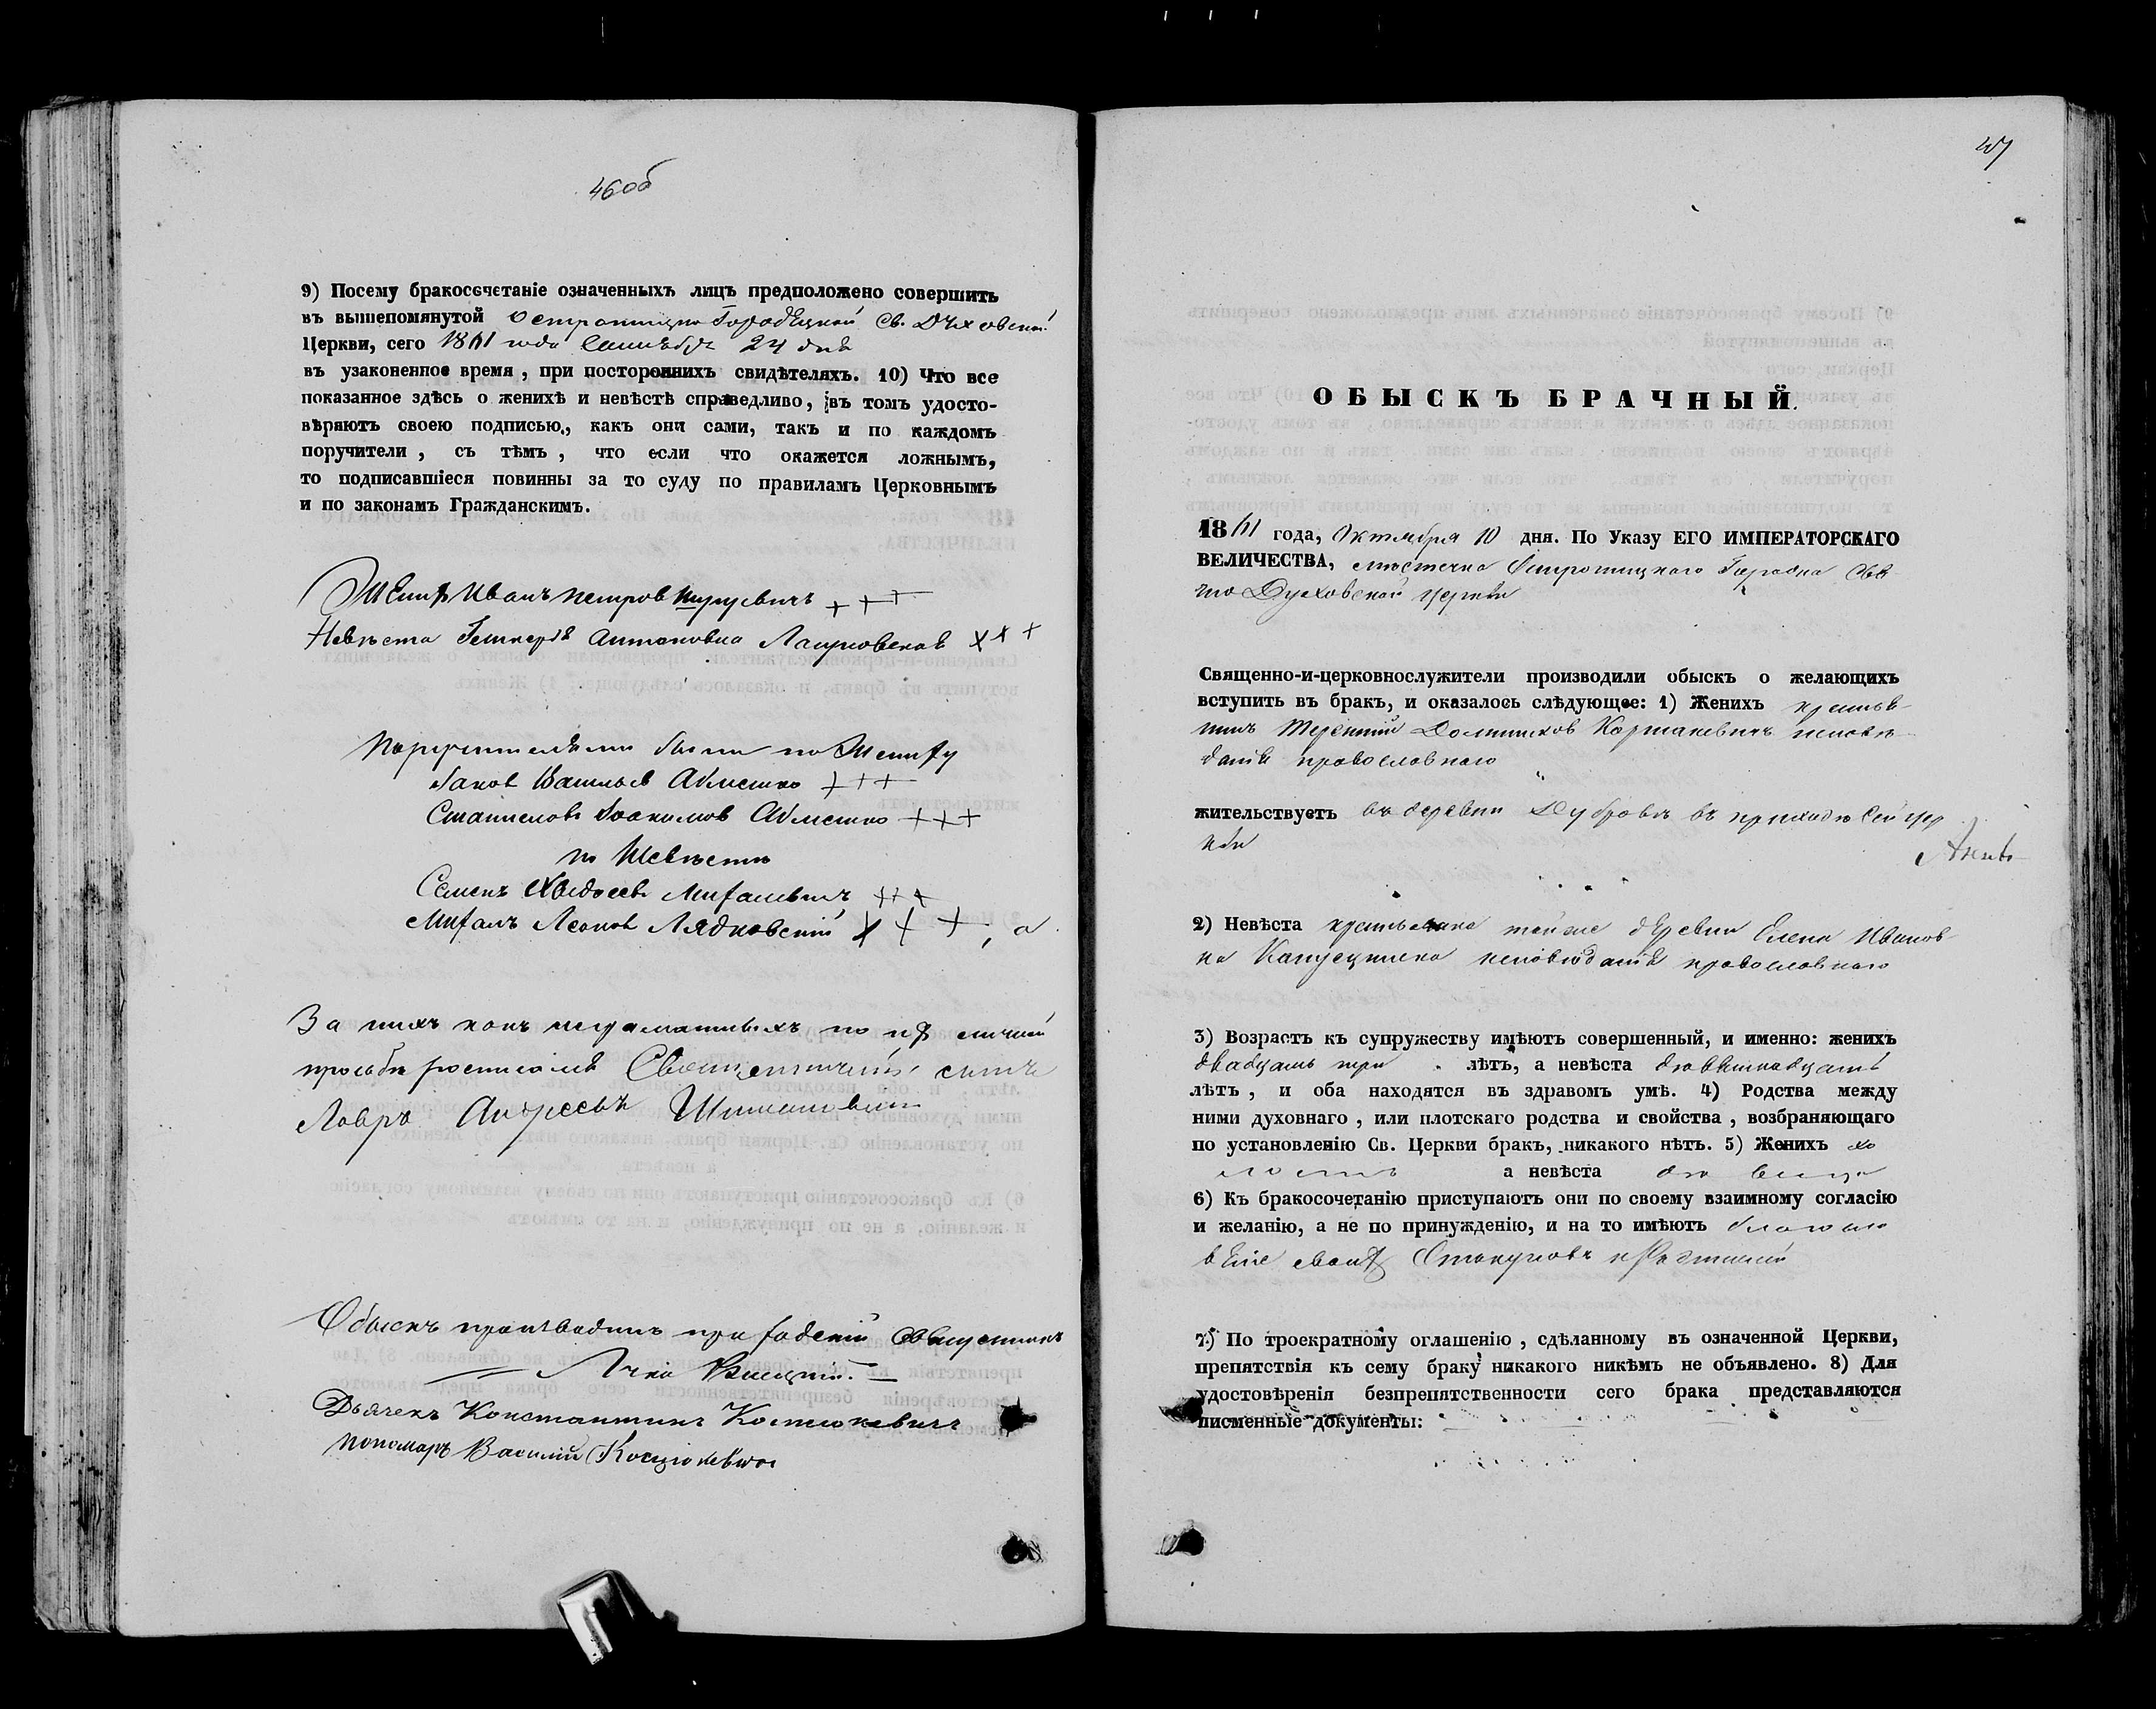 46об
9) Посему бракосочетаніе означенныхъ лицъ предположено совершить
въ вышепомянутой Острошицко Городецкой Св. Духовской
Церкви, сего 1861 года 24 дня
въ узаконенное время, при постороннихъ свидѣтеляхъ. 10) Что все
показанное здѣсь о женихѣ и невѣстѣ справедливо, въ томъ удосто-
вѣряютъ своею подписью, какъ они сами, такъ и по каждомъ
поручители, съ тѣмъ, что если что окажется ложнымъ,
то подписавшіеся повинны за то суду по правиламъ Церковнымъ
и по законамъ Гражданскимъ.
Женихъ Иванъ Петров +++
Невѣста Антоновна +++
Поручителями были по Жениху
Яков +++
Станислав Аблешко +++
по Невѣстѣ
Семенъ Михалевич +++
Михалъ Леонов Лядковскій +++, а
За нихъ какъ неграматныхъ по их личной
просьбѣ росписался Священнический сынъ
Лавръ Андреевъ
Обыскъ производилъ при
Лука
Дьячекъ Константинъ Костюкевичъ
пономарь Василий Косцюкевич
47
ОБЫСКЪ БРАЧНЫЙ.
1861 года, Октября 10 дня. По Указу ЕГО ИМПЕРАТОРСКАГО
ВЕЛИЧЕСТВА, мѣстечка Острошицкаго Городка Свя-
то Духовской церкви
Священно-и-церковнослужители производили обыскъ о желающихъ
вступить въ бракъ, и оказалось слѣдующее: 1) Женихъ крестья-
нинъ Терентий Домиников исповѣ-
данія православнаго
жительствуетъ въ деревни Дубровѣ въ приходѣ сей цер
кви
2) Невѣста крестьянка той же деревни Елена Иванов-
на исповѣданія православнаго
3) Возрастъ къ супружеству имѣютъ совершенный, и именно: женихъ
двадцать три лѣтъ, а невѣста девятнадцать
лѣтъ, и оба находятся въ здравомъ умѣ. 4) Родства между
ними духовнаго, или плотскаго родства и свойства, возбраняющаго
по установленію Св. Церкви бракъ, никакого нѣтъ. 5) Женихъ хо
лостъ а невѣста девица
6) Къ бракосочетанію приступаютъ они по своему взаимному согласію
и желанію, а не по принужденію, и на то имѣютъ благосло
веніе своихъ Опекуновъ и Родителей
7) По троекратному оглашенію, сдѣланному въ означенной Церкви,
препятствія къ сему браку никакого никѣмъ не объявлено. 8) Для
удостовѣренія безпрепятственности сего брака представляются
писменные документы: